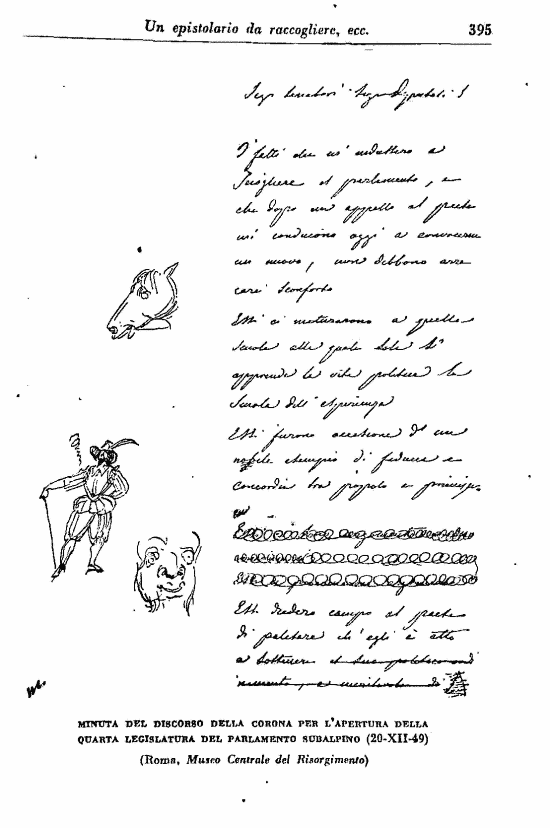 Un epistolario da raccogliere, ecc. 395
Sigri Senatori! Signri Deputati!
I fatti che m'indussero a
sciogliere il parlamento, e
che dopo un appello al paese
mi conducono oggi a convocarne
un nuovo, non debbono arre
care sconforto
Essi ci maturarono a quella
scuola alla quale sola s'
apprende la vita politica la
scuola dell'esperienza
Essi furono occasione d'un
nobile esempio di fiducia e
concordia tra popolo e principe.
Essi diedero campo al paese
di palesare ch'egli è atto
a sostenere
MINUTA DEL DISCORSO DELLA CORONA PER L'APERTURA DELLA
QUARTA LEGISLATURA DEL PARLAMENTO SUBALPINO (20-XII-49)
(Roma, Museo Centrale del Risorgimento)